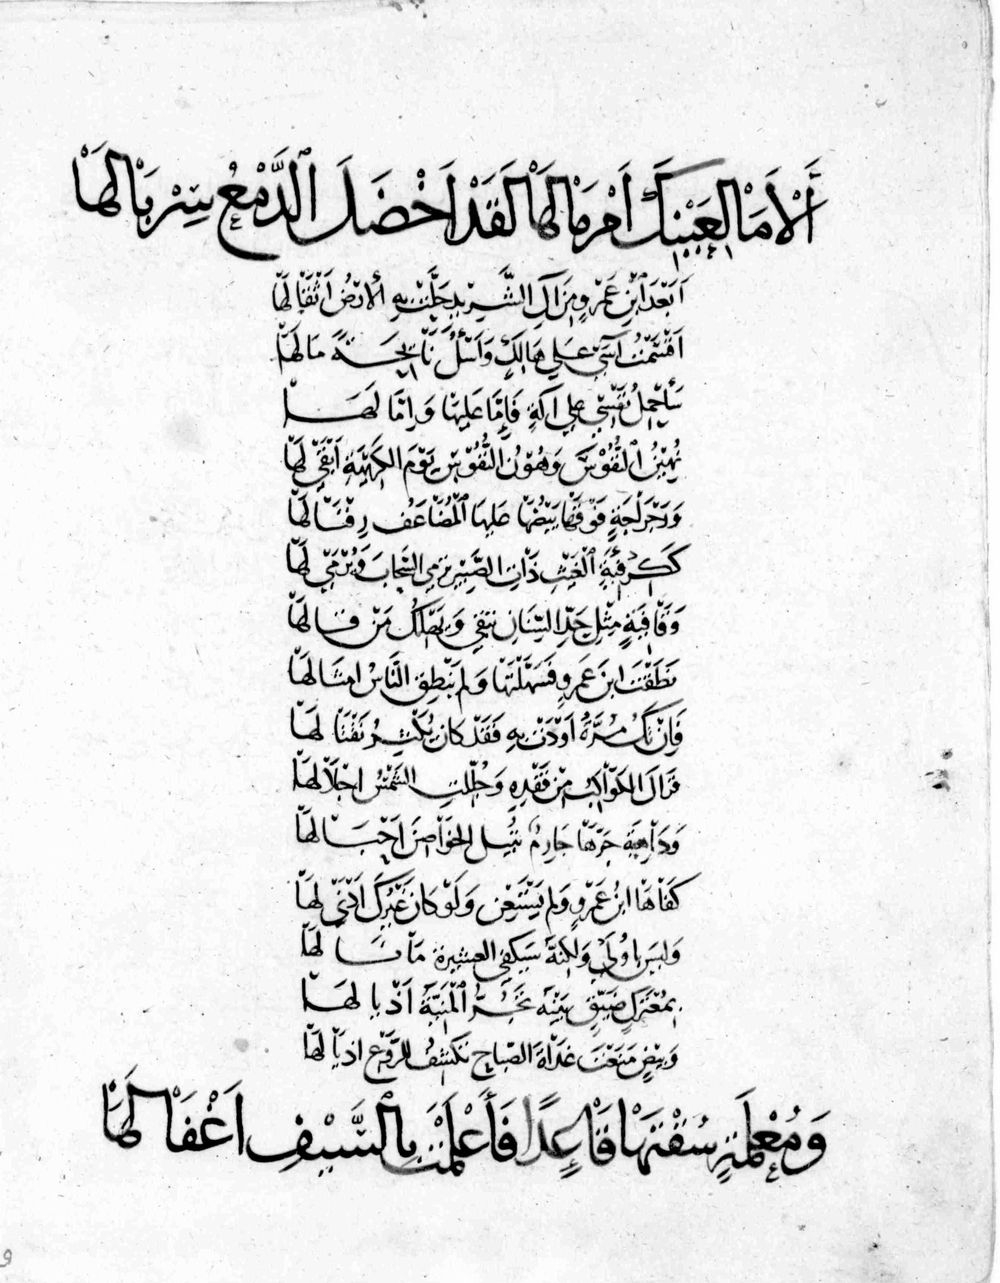 أَلَا مَا لِعَيْنِكَ أَمْ مَا لَهَا لَقَدْ اَخْضَلَ الدَّمْعُ سِرْبَالَهَا
اَبَعْدَ ابْنِ عَمْرٍو مِنَ الِ الشَّرِيدِ حَلَّتْ بِهِ الارْضُ اَثْقَالَهَا
اَقْسَمْتُ آسَى عَلَى هَالِكٍ وَاَسْأَلُ نَائِحَةً مَا لَهَا
سَأَحْمِلُ نَفْسِي عَلَى الَةٍ فَإِمَّا عَلَيْهَا وَاِمَّا لَهَا
نُهِينُ النُّفُوسَ وَهَوْنُ النُّفُوسِ يَوْمَ الكَرِيهَةِ اَبْقَى لَهَا
وَرَجْرَاجَةٍ فَوْقَهَا بَيْضُهَا عَلَيْهَا الْمُضَاعَفُ زِفْنَا لَهَا
كَكِرْفِئَةِ الْغَيْثِ ذَاتِ الصَّبِيرِ تَرْمِي السَّحَابَ وَيُرْمَى لَهَا
وَقَافِيَةٍ مِثْلِ حَدِّ السِّنَانِ تَبْقَى وَيَهْلِكُ مَنْ قَالَهَا
نَطَقْتَ ابْنَ عَمْرٍو فَسَهَّلْتَهَا وَلَمْ يَنْطِقِ النَّاسُ امْثَالَهَا
فَإِنْ تَكُ مُرَّةُ اَوْدَتْ بِهِ فَقَدْ كَانَ يُكْثِرُ تَقْتَالَهَا
فَزَالَ الكَوَاكِبُ مِنْ فَقْدِهِ وَجُلِّلَتِ الشَّمْسُ اجْلَالَهَا
وَدَاهِيَةٍ جَرَّهَا جَارِمٌ تُبِيلُ الخَوَاصِنَ اَحْبَالَهَا
كَفَاهَا ابْنُ عَمْرٍو وَلَمْ يَسْتَعِنْ وَلَوْ كَانَ غَيْرُكَ اَدْنَى لَهَا
وَلَيْسَ بِاَوْلَى وَلَكِنَّهُ سَيَكْفِي العَشِيرَةَ مَا نَالَهَا
بِمُعْتَرَكٍ ضَيِّقٍ بَيْنَهُ تَجُرُّ الْمَنِيَّةُ اَذْيَالَهَا
وَبِيضٍ مَنَعْتَ غَدَاةَ الصَّبَاحِ تَكْشِفُ لِلرَّوْعِ اذْيَالَهَا
وَمُعْمَلَةٍ سُقْتَهَا قَاعِدًا فَأَعْلَمْتَ بِالسَّيْفِ اَغْفَالَهَا